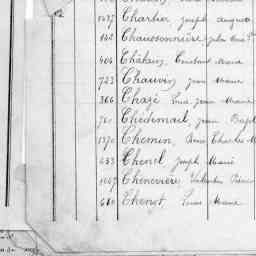 1437 Chartier Joseph Auguste
142 Chaussonnière Julien
404 Châtain, Constant Marie
723 Chauvin Jean Marie
366 Chazé Louis Jean Marie
761 Chédemail, Jean Bapt
1370 Chemin, Charles M
433 Chenel Joseph Marie
1047 Chenevière Valentin Pierre
680 Chenot Louis Marie